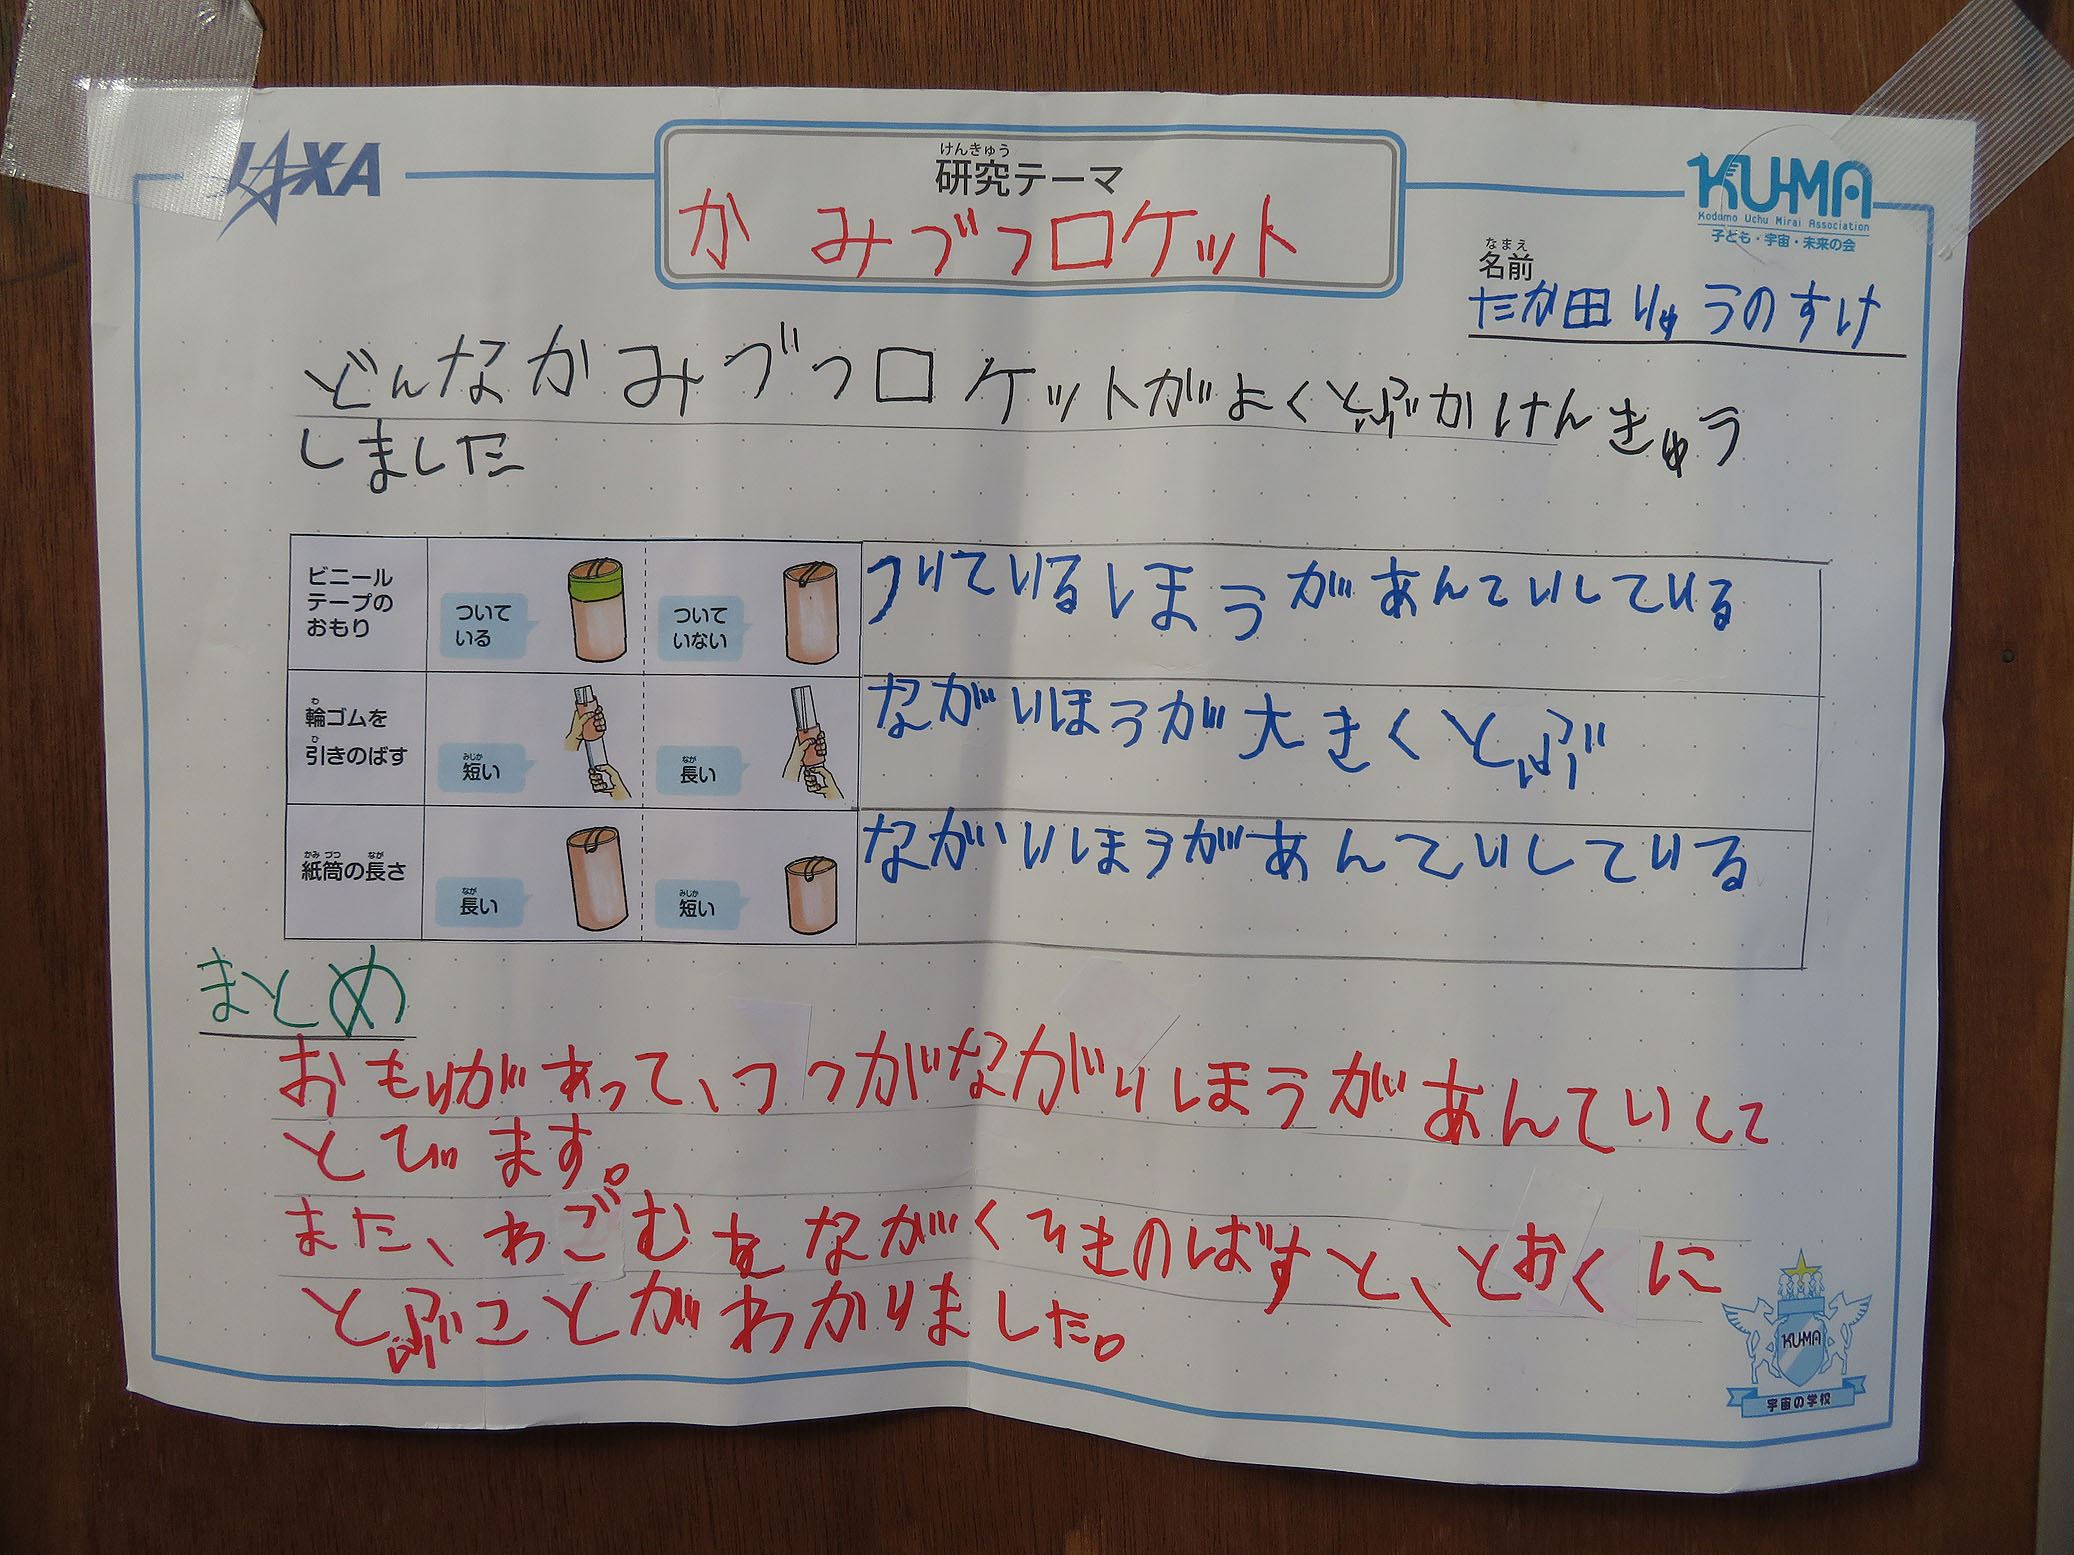 JAXA
けんきゅう
研究テーマ
かみづつロケット
KU-MA
Kodomo Uchu Mirai Association
子ども・宇宙・未来の会
なまえ
名前
たか田りゅうのすけ
どんなかみづつロケットがよくとぶかけんきゅう
しました
ビニール
テープの
おもり
ついて
いる
ついて
いない
ついているほうがあんていしている
わ
輪ゴムを
ひ
引きのばす
みじか
短い
なが
長い
ながいほうが大きくとぶ
かみ づつ なが
紙筒の長さ
なが
長い
みじか
短い
ながいほうがあんていしている
まとめ
おもりがあって、つつがながいほうがあんていして
とびます。
また、わごむをながくひきのばすと、とおくに
とぶことがわかりました。
KUMA
宇宙の学校